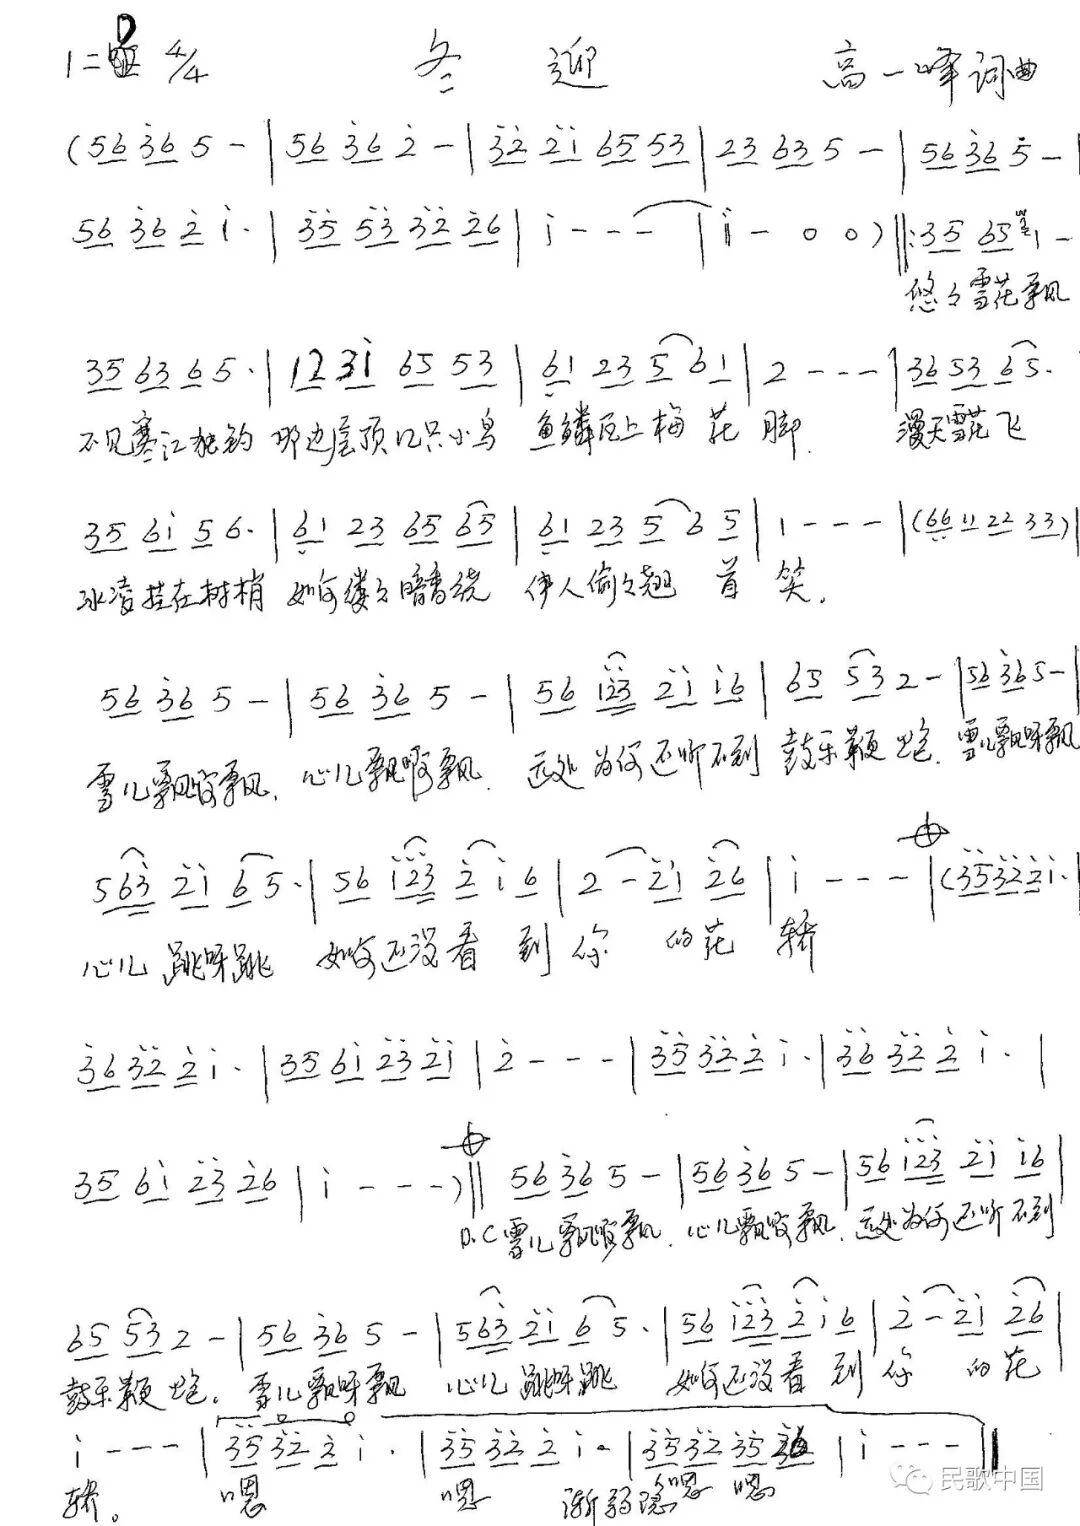 1=D 4/4 冬迎 高一峰词曲
(56 3̇6 5 - | 56 3̇6 2̇ - | 3̇2̇ 2̇1̇ 65 53 | 23 63 5 - | 56 3̇6 5 - |
56 3̇6 2̇ 1̇· | 3̇5̇ 5̇3̇ 3̇2̇ 2̇6 | 1̇ - - - | 1̇ - 0 0) ‖: 35 65 1̇ -
悠々雪花飘
35 63 6 5· | 12 31̇ 65 53 | 61 23 5 61 | 2 - - - | 36 53 6 5·
不见寒江独钓 那边屋顶几只小鸟 鱼鳞瓦上梅花脚 漫天雪花飞
35 61̇ 5 6· | 61 23 65 65 | 61 23 5 6 5 | 1 - - - | (66 11 22 33) |
冰凌挂在树梢 如何缕々暗香绕 伊人偷々翘首笑.
56 3̇6 5 - | 56 3̇6 5 - | 56 1̇2̇3̇ 2̇1̇ 1̇6 | 65 53 2 - | 56 3̇6 5 - |
雪儿飘呀飘. 心儿飘呀飘. 远处为何还听不到 鼓乐鞭炮. 雪儿飘呀飘
563̇ 2̇1̇ 6 5· | 56 1̇2̇3̇ 2̇ 1̇ 6 | 2 - 2̇1̇ 2̇6 | 1̇ - - - | (3̇5̇ 3̇2̇ 2̇ 1̇· |
心儿跳呀跳 如何还没看到你的花轿
3̇6 3̇2̇ 2̇ 1̇· | 35 61̇ 2̇3̇ 2̇1̇ | 2̇ - - - | 3̇5̇ 3̇2̇ 2̇ 1̇· | 3̇6 3̇2̇ 2̇ 1̇· |
35 61̇ 2̇3̇ 2̇6 | 1̇ - - - ) ‖ 56 3̇6 5 - | 56 3̇6 5 - | 56 1̇2̇3̇ 2̇1̇ 1̇6 |
D.C 雪儿飘呀飘. 心儿飘呀飘. 远处为何还听不到
65 53 2 - | 56 36 5 - | 563̇ 2̇1̇ 6 5· | 56 1̇2̇3̇ 2̇ 1̇ 6 | 2̇ - 2̇1̇ 2̇6 |
鼓乐鞭炮. 雪儿飘呀飘 心儿跳呀跳 如何还没看到你的花
1̇ - - - | 3̇5̇ 3̇2̇ 2̇ 1̇· | 3̇5̇ 3̇2̇ 2̇ 1̇· | 3̇5̇ 3̇2̇ 3̇5̇ | 1̇ - - - ‖
轿。 嗯 嗯 渐弱隐 嗯 嗯
民歌中国